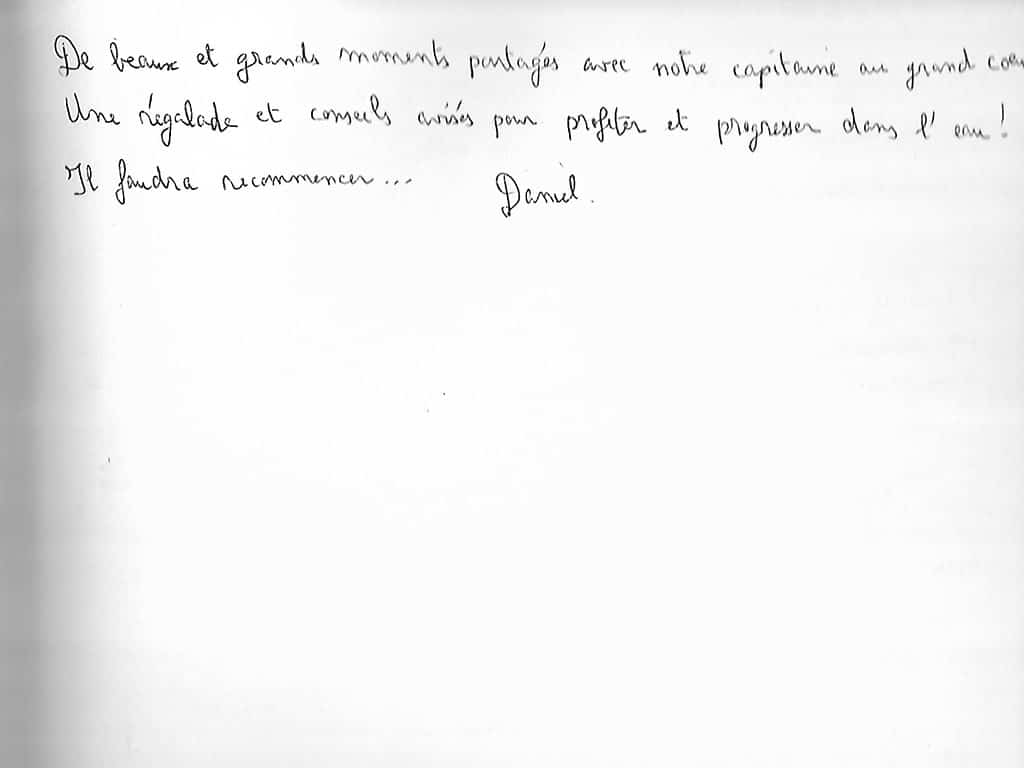 De beaux et grands moments partagés avec notre capitaine au grand coeu
Une régalade et conseils avisés pour profiter et progresser dans l'eau !
Il faudra recommencer... Daniel.